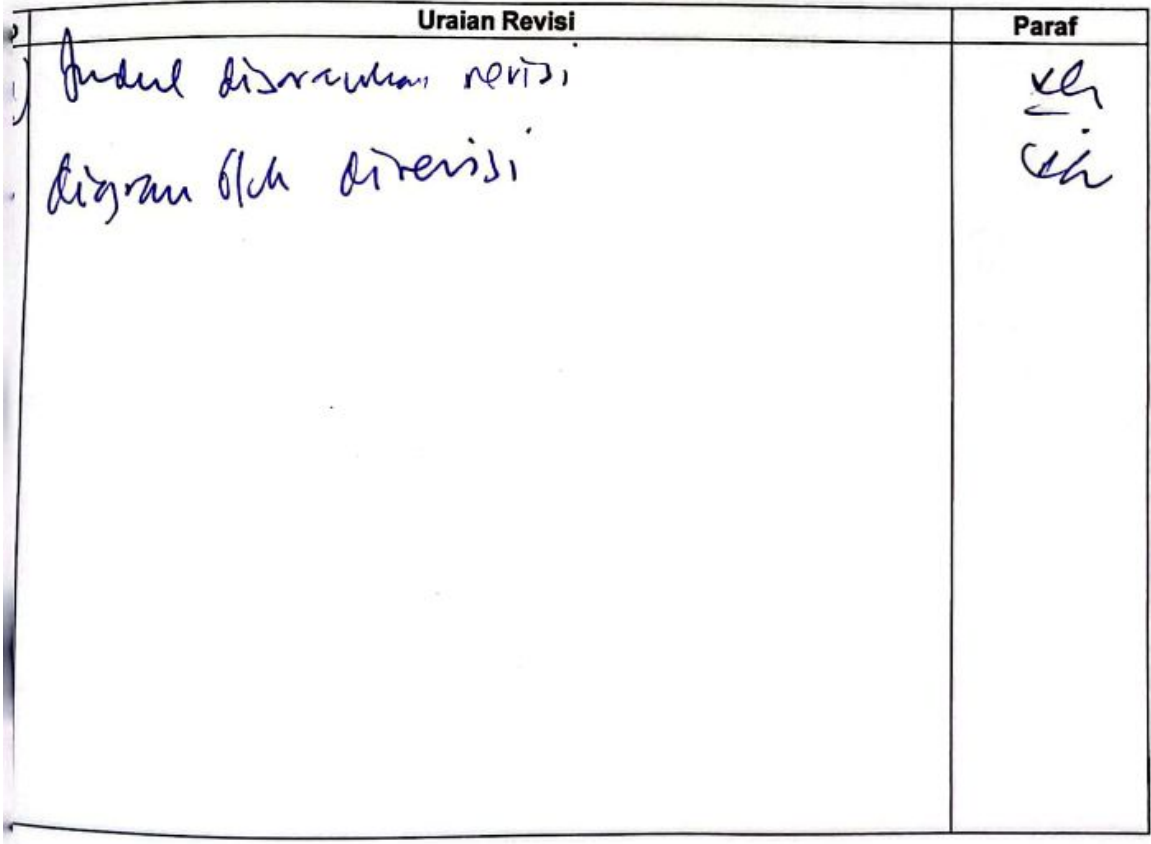 Uraian Revisi Paraf
Judul disarankan revisi
diagram blok direvisi